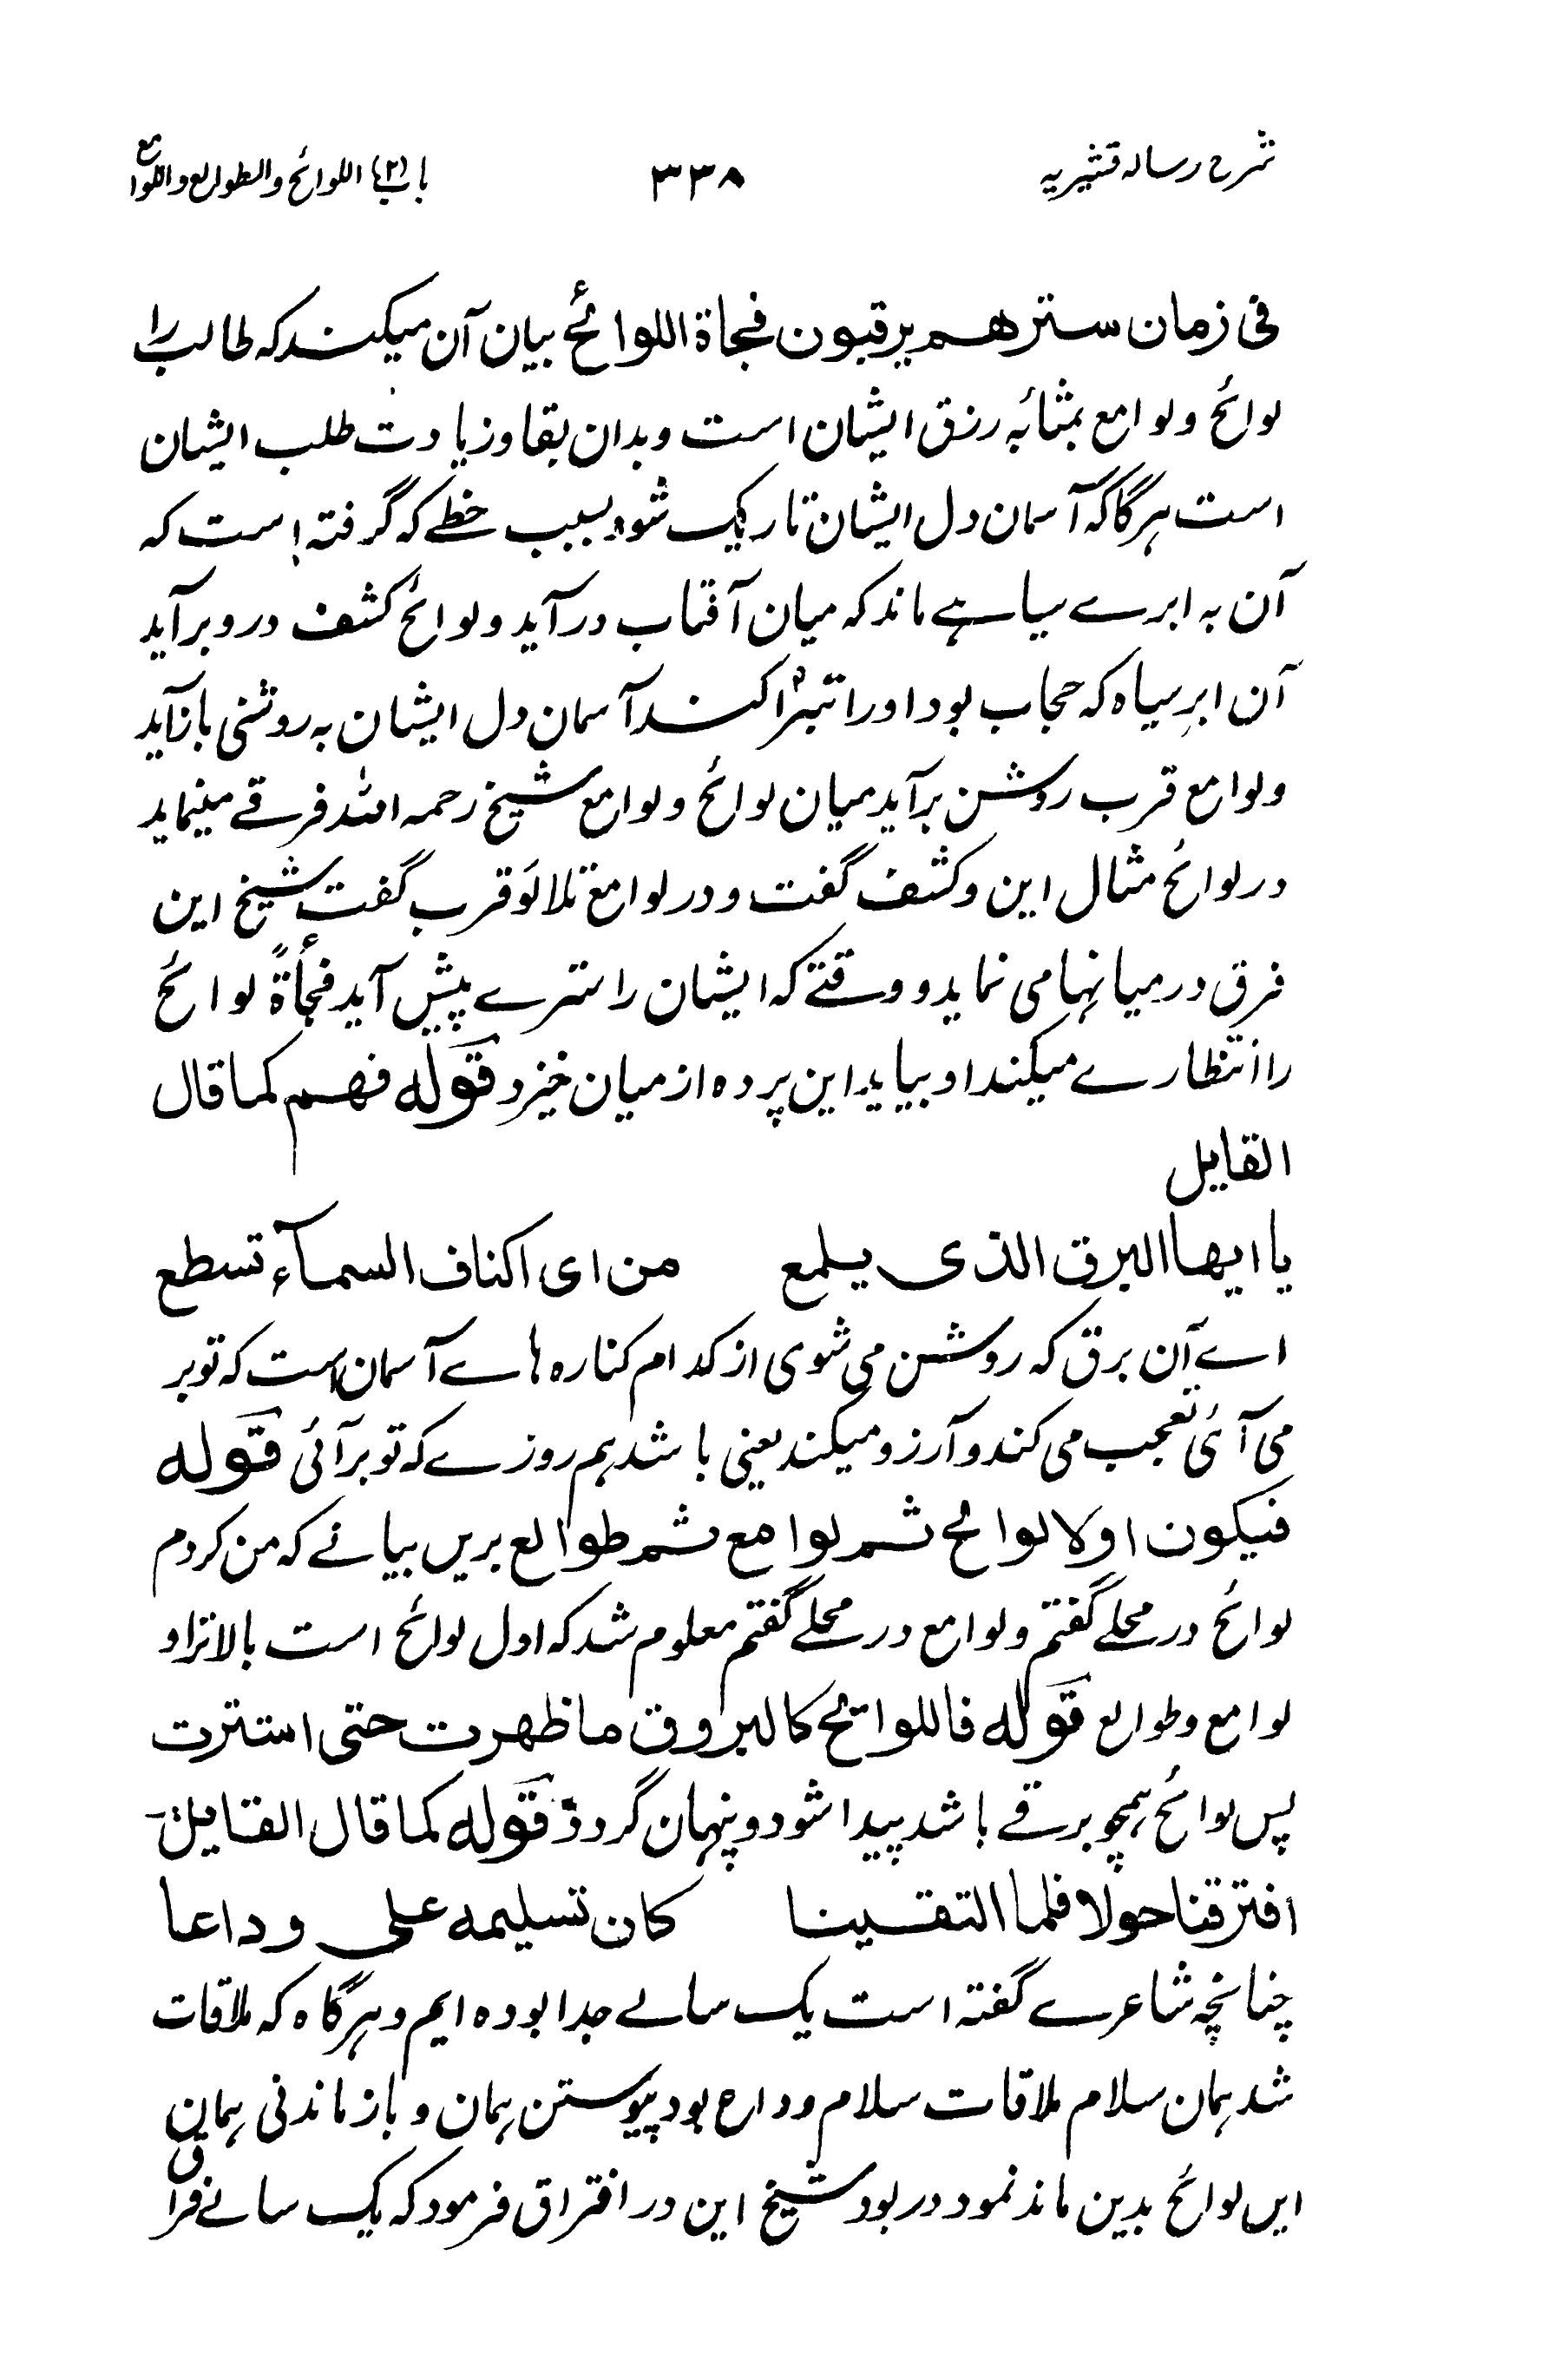 شرح رساله قشیریه
۳۳۸
باب (۲) اللوائح والطوالع واللوامع
فی زمان سترهم یرقبون فجاة اللوائح بیان آن میکند که طالب را
لوائح و لوامع بمثابه رزق ایشان است و بدان بقا و زیادت طلب ایشان
است هرگاگه آسمان دل ایشان تاریک شود بسبب حظے که گرفته است که
آن به ابرے سیاہے ماند که میان آفتاب درآید و لوائح کشف درو برآید
آن ابرِ سیاه که حجاب بود او را تبرا کند آسمان دل ایشان به روشنی بازآید
و لوامع قرب روشن برآید میان لوائح و لوامع شیخ رحمه الله فرقے مینماید
در لوائح مثال این و کشف گفت و در لوامع تلالؤ قرب گفت شیخ این
فرق درمیانها می نماید و وقتے که ایشان را سترے پیش آید فجأةً لوائح
را انتظارے میکند او بیاید این پرده از میان خیزد قوله فهم کما قال
القایل
یا ایها البرق الذی یلمع من ای اکناف السمآء تسطع
اے آن برق که روشن می شوی از کدام کناره هاے آسمان است که تو بر
می آئی تعجب می کند و آرزو میکند یعنی باشد هم روزے که تو برآئی قوله
فیکون اولا لوائح ثم لوامع ثم طوالع برین بیانے که من کردم
لوائح در محلے گفتم و لوامع در محلے گفتم معلوم شد که اول لوائح است بالاتر او
لوامع و طوالع قوله فاللوائح کالبروق ما ظهرت حتی استترت
پس لوائح همچو برقے باشد پیدا شود و پنهان گردد قوله کما قال القایل
افترقنا حولا فلما التقینا کان تسلیمه علی وداعا
چنانچه شاعرے گفته است یک سالے جدا بوده ایم و هرگاه که ملاقات
شد همان سلام ملاقات سلام وداع بود پیوستن همان و بازماندنی همان
این لوائح بدین ماند نمود در بود شیخ این در افتراق فرمود که یک سالے فراق